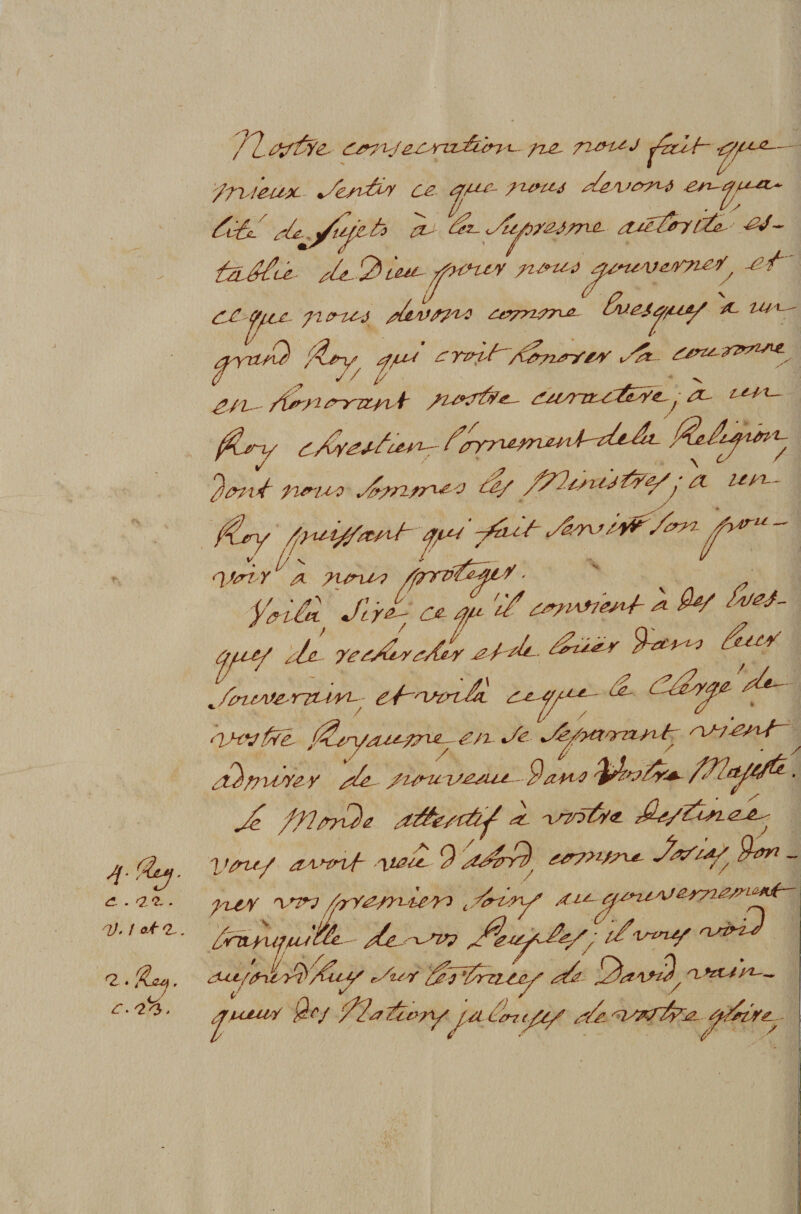 Nostre consecration ne nous fait que
mieux sentir ce que nous devons en qua-
lité de sujets à la supresme autorité es-
tablie de Dieu pour nous gouverner, et
ce que nous devons comme Evesques à un
grand Roy, qui croit honorer sa couronne
en honorant nostre caractere; à un
Roy chrestien l'ornement de la Religion,
dont nous sommes les Ministres; à un
Roy puissant qui fait servir son pou-
voir à nous proteger.
Voilà, Sire, ce qu'il convient à des Eves-
ques de rechercher et de loüer dans leur
souverain, et voilà ce que le Clergé de
vostre Royaume en se separant, vient
admirer de nouveau dans Vostre Majesté.
Le Monde attentif à vostre destinée,
vous avoit veû d'abord, comme Josias, don-
4. Reg.
ner vos premiers soins au gouvernement
c. 22.
v. 1 et 2.
tranquille de vos Peuples; il vous void
2. Reg.
aujourd'huy sur les traces de David, vain-
c. 23.
queur des Nations jalouses de vostre gloire,